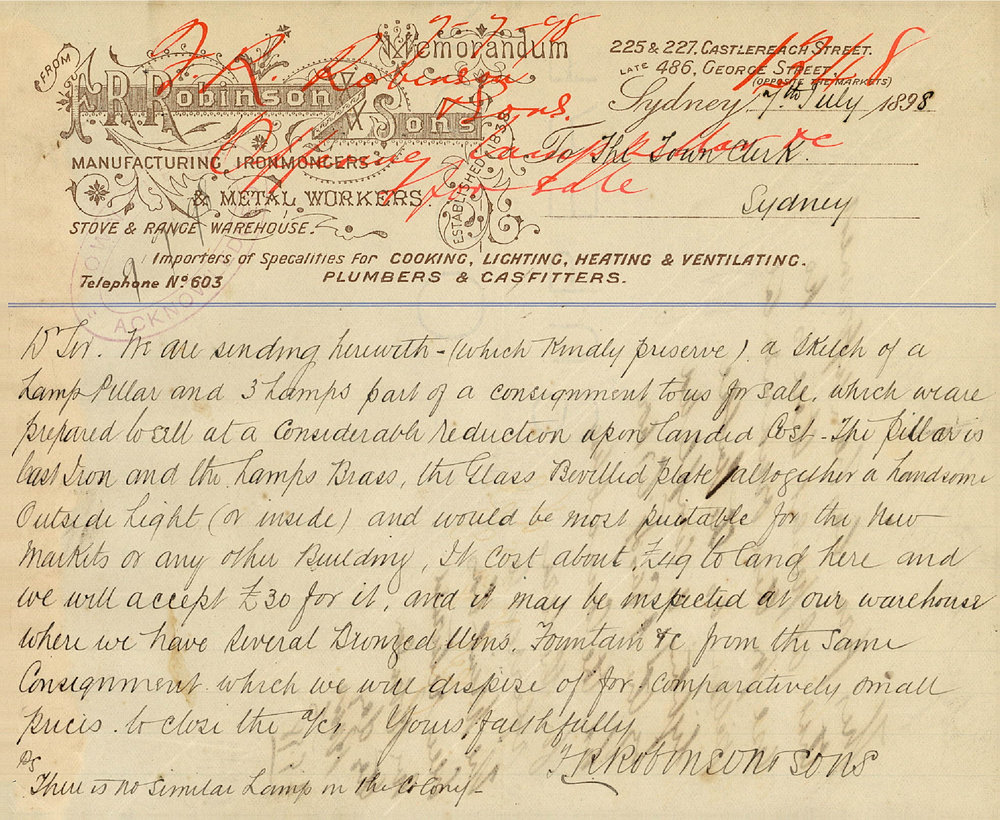 FROM
F. R. Robinson & Sons
MANUFACTURING IRONMONGERS
& METAL WORKERS.
STOVE & RANGE WAREHOUSE.
ESTABLISHED 1838
Memorandum
225 & 227, CASTLEREAGH STREET.
LATE 486, GEORGE STREET.
(OPPOSITE THE MARKETS)
Sydney 7th July 1898
To The Town Clerk.
Sydney
Importers of Specalities for COOKING, LIGHTING, HEATING & VENTILATING.
Telephone No 603
PLUMBERS & GASFITTERS.
7-7-98
F. R. Robinson
& Sons.
Offering lamp pillar &c
for sale
ACKNOWLED
Dr Sir. We are sending herewith - (which Kindly preserve) a Sketch of a
Lamp Pillar and 3 Lamps part of a consignment to us for sale. which we are
prepared to sell at a Considerable reduction upon landed Cost - The pillar is
Cast Iron and the Lamps Brass, the Glass Bevilled plate, altogether a handsome
Outside Light (or inside) and would be most suitable for the New
Markets or any other Building, It cost about £49 to land here and
we will accept £30 for it, and it may be inspected at our warehouse
where we have several Bronzed Urns. Fountain &c from the same
Consignment which we will dispose of for comparatively small
prices to close the a/c, Yours faithfully
F R Robinson & Sons
PS
There is no similar Lamp in the Colony -